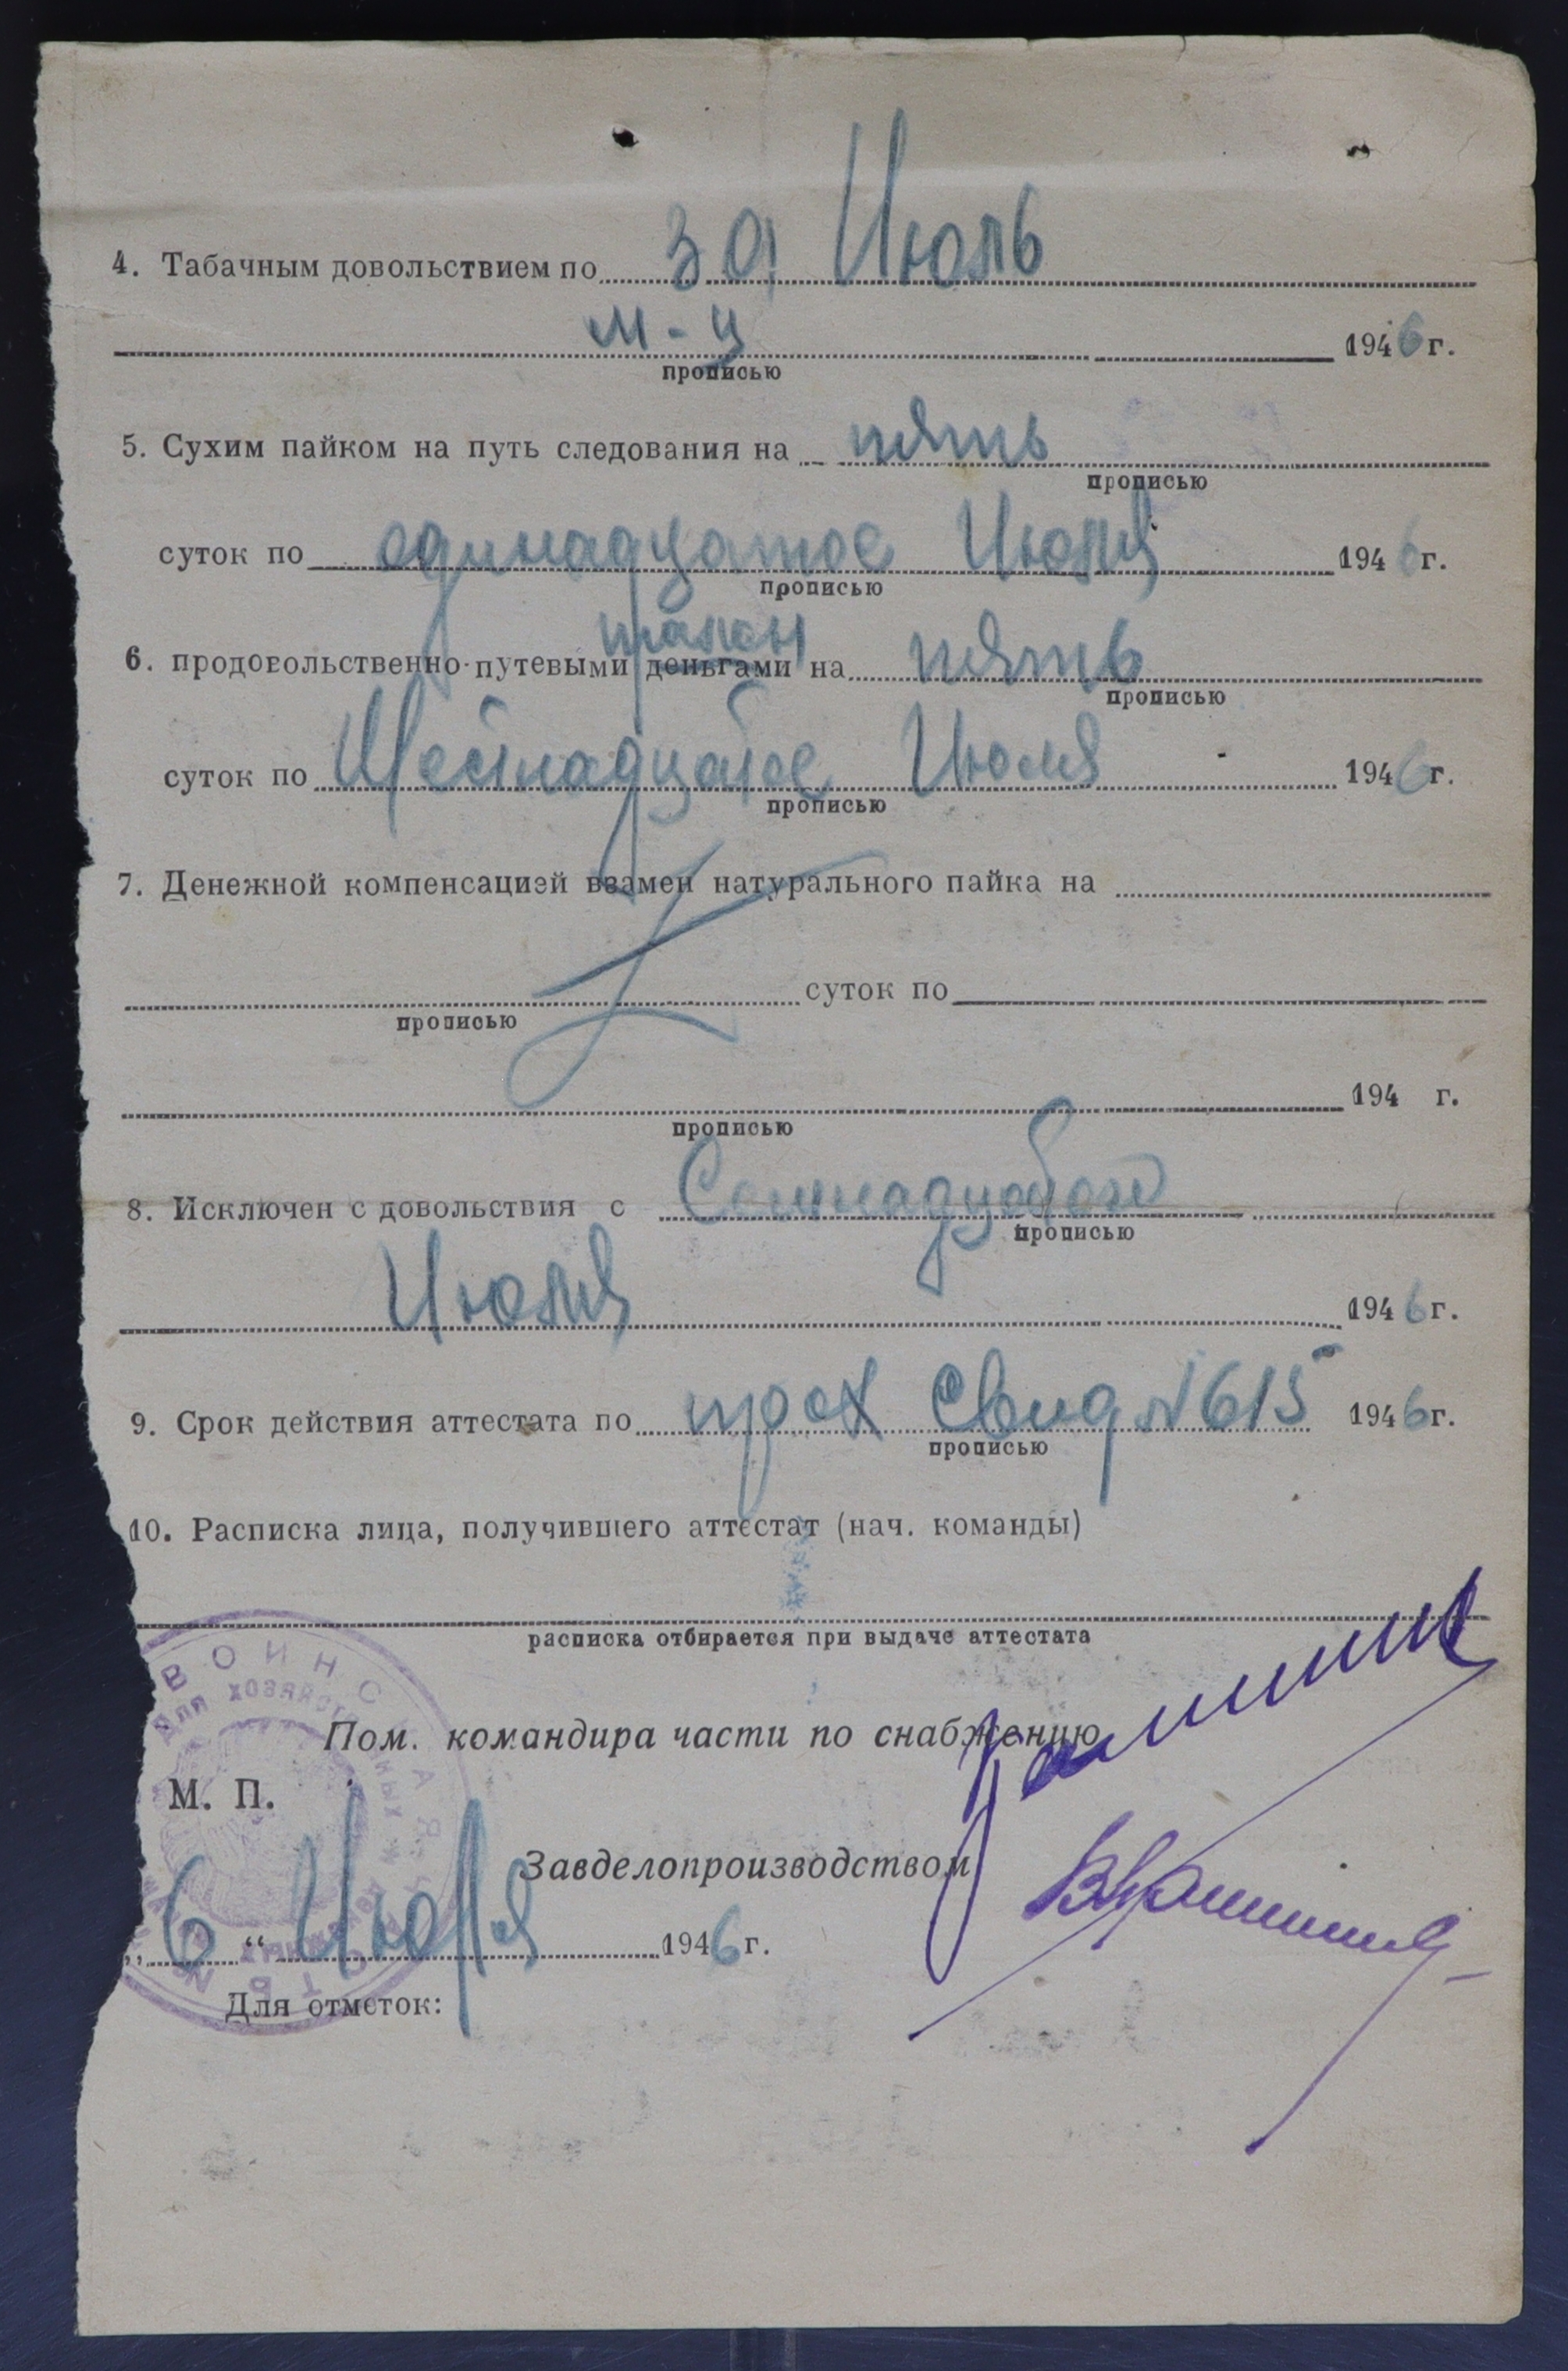 4. Табачным довольствием по за Июль
м-ц 1946 г.
прописью
5. Сухим пайком на путь следования на пять
прописью
суток по одинадцатое Июля 1946 г.
прописью
талон
6. продовольственно-путевыми деньгами на пять
прописью
суток по Шестнадцатое Июля 1946 г.
прописью
7. Денежной компенсацией взамен натурального пайка на
суток по
прописью
194 г.
прописью
8. Исключен с довольствия с Семнадцатого
прописью
Июля 1946 г.
9. Срок действия аттестата по прох свид № 615 1946 г.
прописью
10. Расписка лица, получившего аттестат (нач. команды)
расписка отбирается при выдаче аттестата
ВОИНСКАЯ
Для хозяйственных
Пом. командира части по снабжению
М. П.
Завделопроизводством
„6“ Июля 1946 г.
Для отметок: